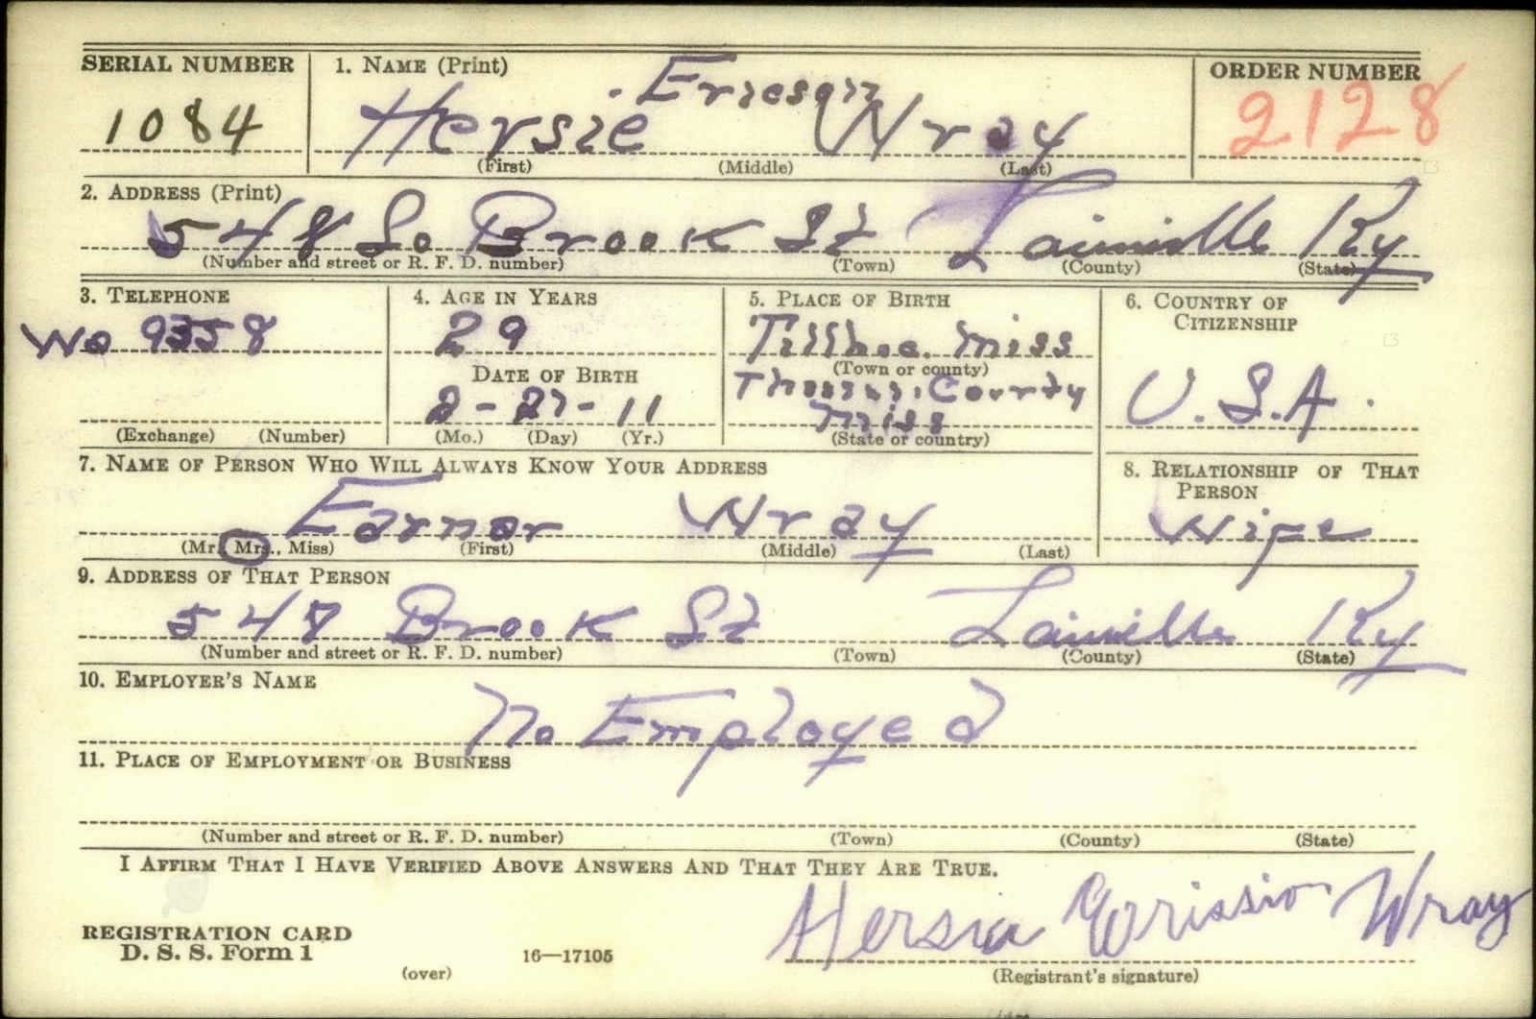 SERIAL NUMBER
1084
1. NAME (Print)
Hersie Ericson Wray
(First) (Middle) (Last)
ORDER NUMBER
2128
2. ADDRESS (Print)
548 So Brook St Louisville Ky
(Number and street or R. F. D. number) (Town) (County) (State)
3. TELEPHONE
Wa 9358
(Exchange) (Number)
4. AGE IN YEARS
29
DATE OF BIRTH
2-27-11
(Mo.) (Day) (Yr.)
5. PLACE OF BIRTH
Miss
(Town or county)
County
Miss
(State or country)
6. COUNTRY OF
CITIZENSHIP
U.S.A.
7. NAME OF PERSON WHO WILL ALWAYS KNOW YOUR ADDRESS
Earnor Wray
(Mr., Mrs., Miss) (First) (Middle) (Last)
8. RELATIONSHIP OF THAT
PERSON
Wife
9. ADDRESS OF THAT PERSON
548 Brook St Louisville Ky
(Number and street or R. F. D. number) (Town) (County) (State)
10. EMPLOYER'S NAME
No Employed
11. PLACE OF EMPLOYMENT OR BUSINESS
(Number and street or R. F. D. number) (Town) (County) (State)
I AFFIRM THAT I HAVE VERIFIED ABOVE ANSWERS AND THAT THEY ARE TRUE.
Hersia Wray
REGISTRATION CARD
D. S. S. Form 1
(over)
16—17105
(Registrant's signature)